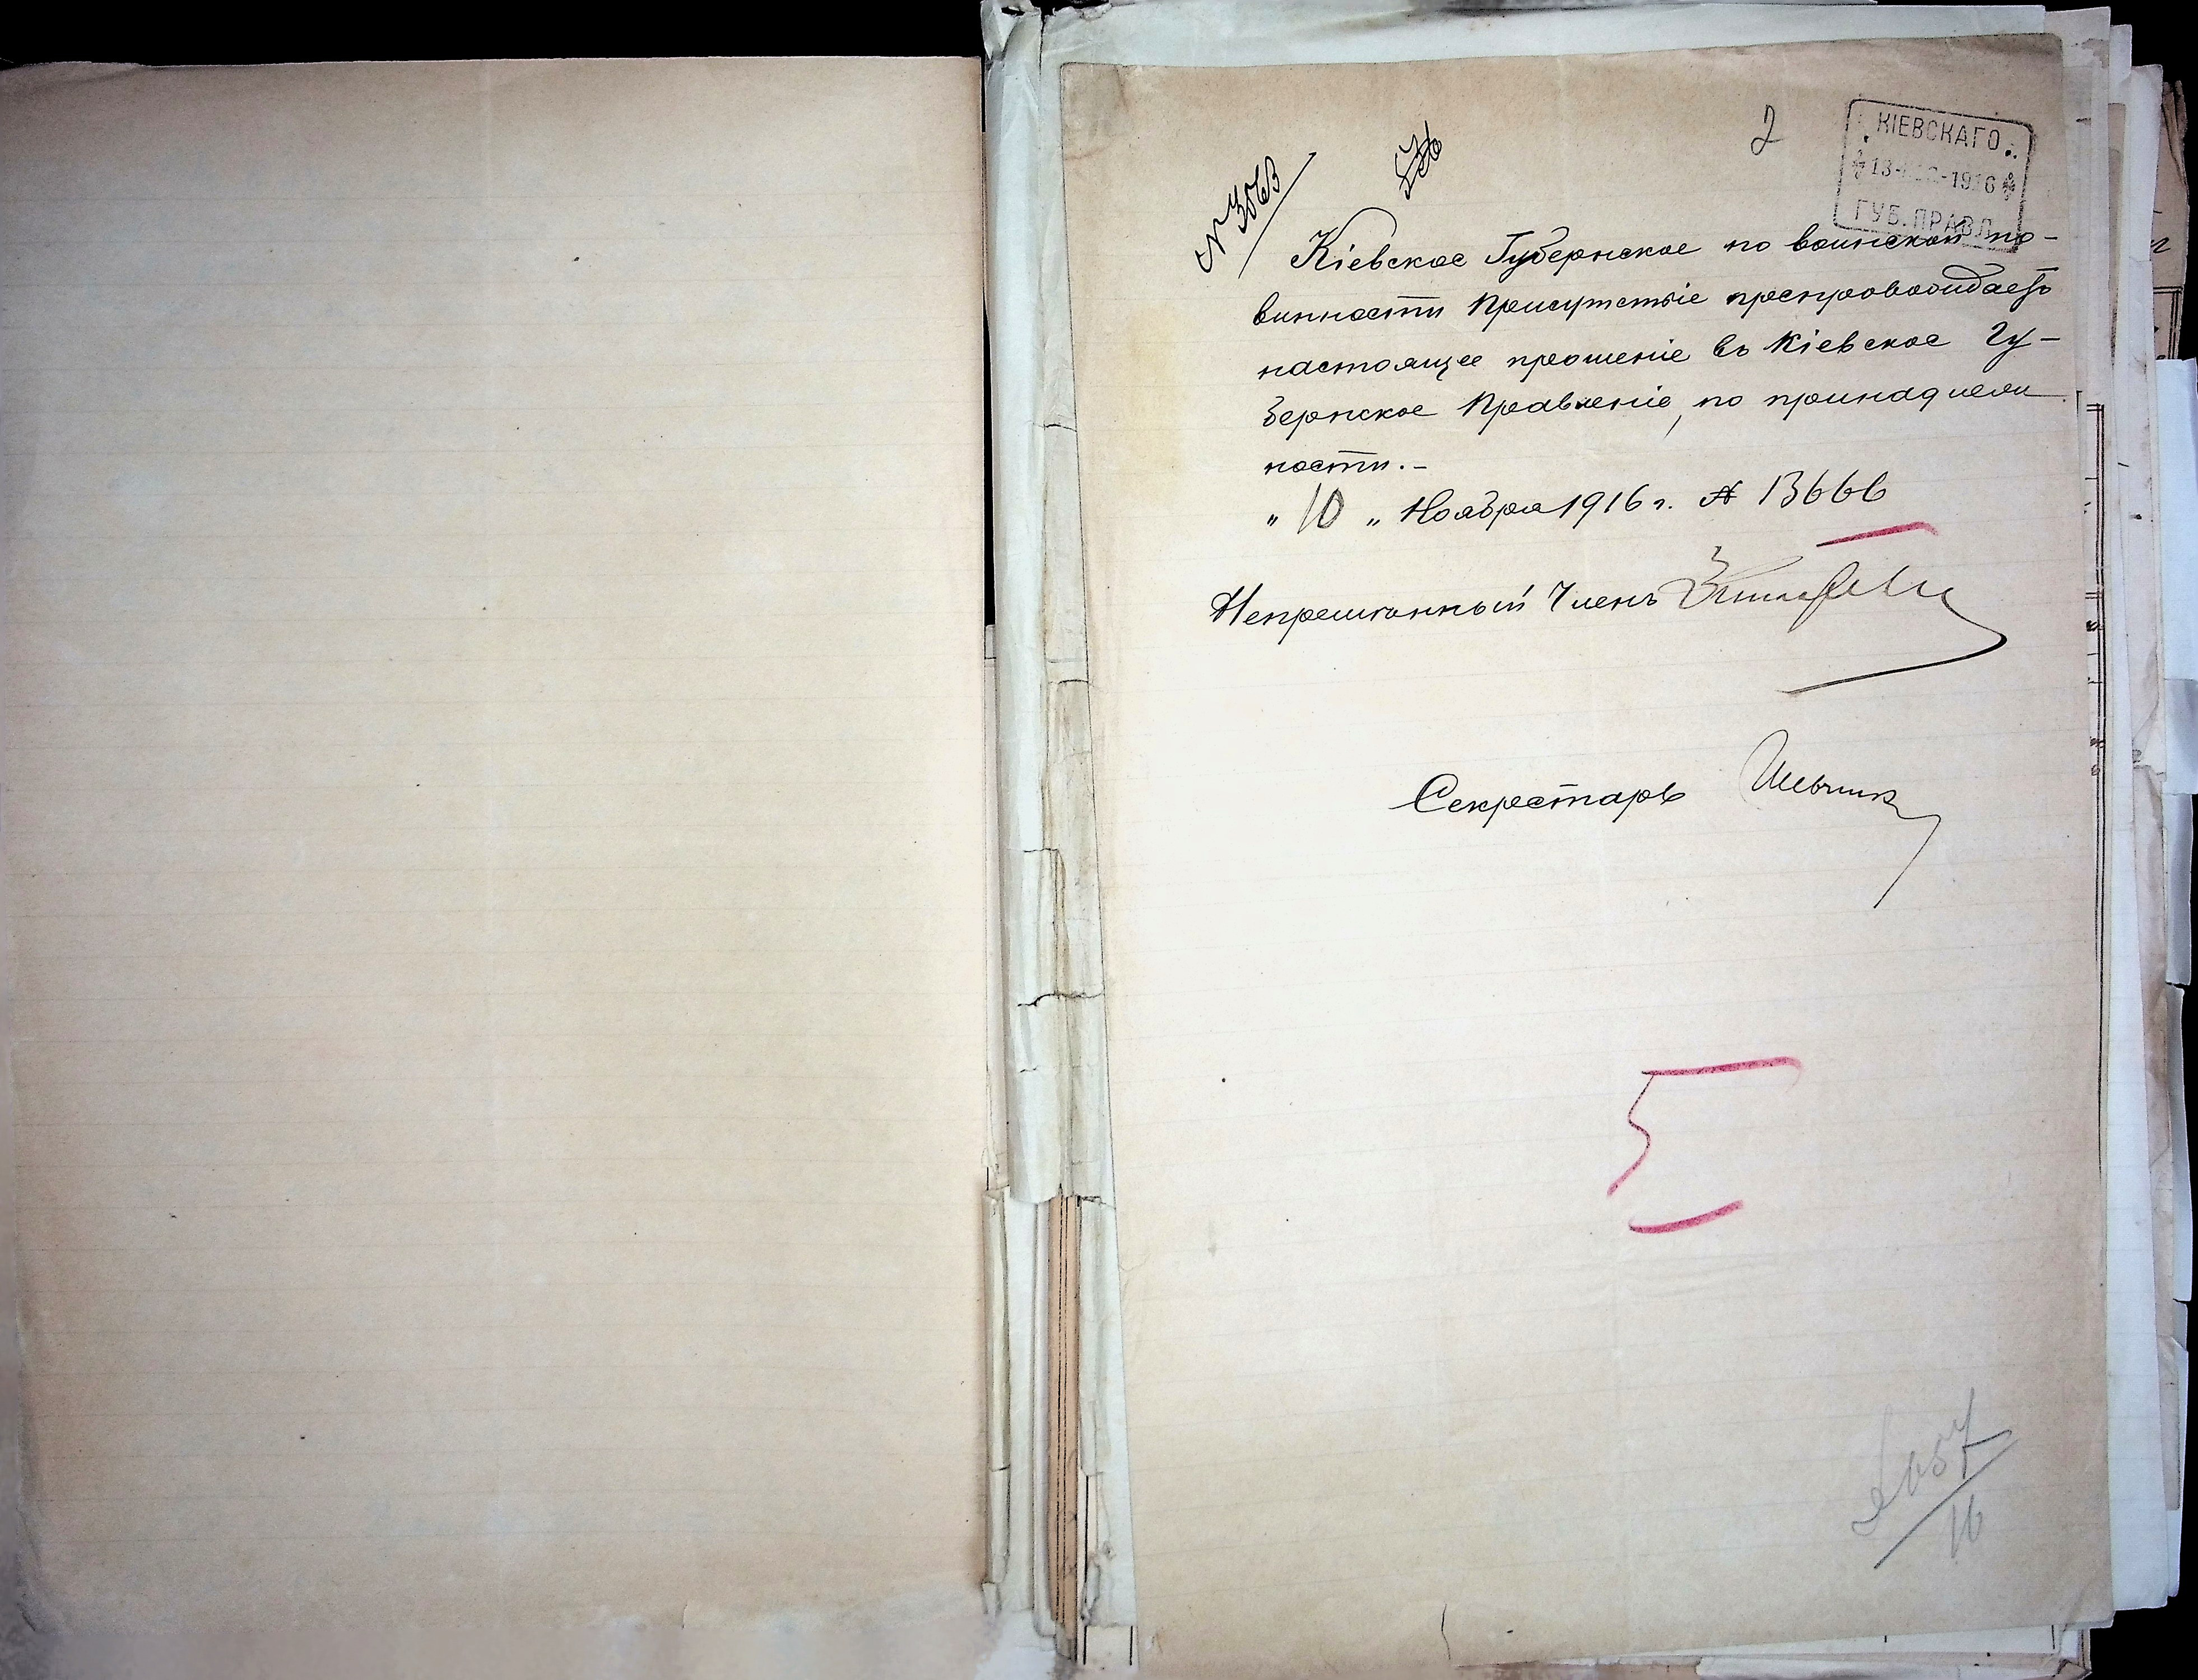 2
КІЕВСКАГО
ГУБ. ПРАВЛ.
№ 3063
Кіевское Губернское по воинской по-
винности Присутствіе препровождаетъ
настоящее прошеніе въ Кіевское Гу-
бернское Правленіе, по принадлеж
ности.-
" 10 " Ноября 1916 г. № 13666
Непремѣнный Членъ
Секретарь
5
16